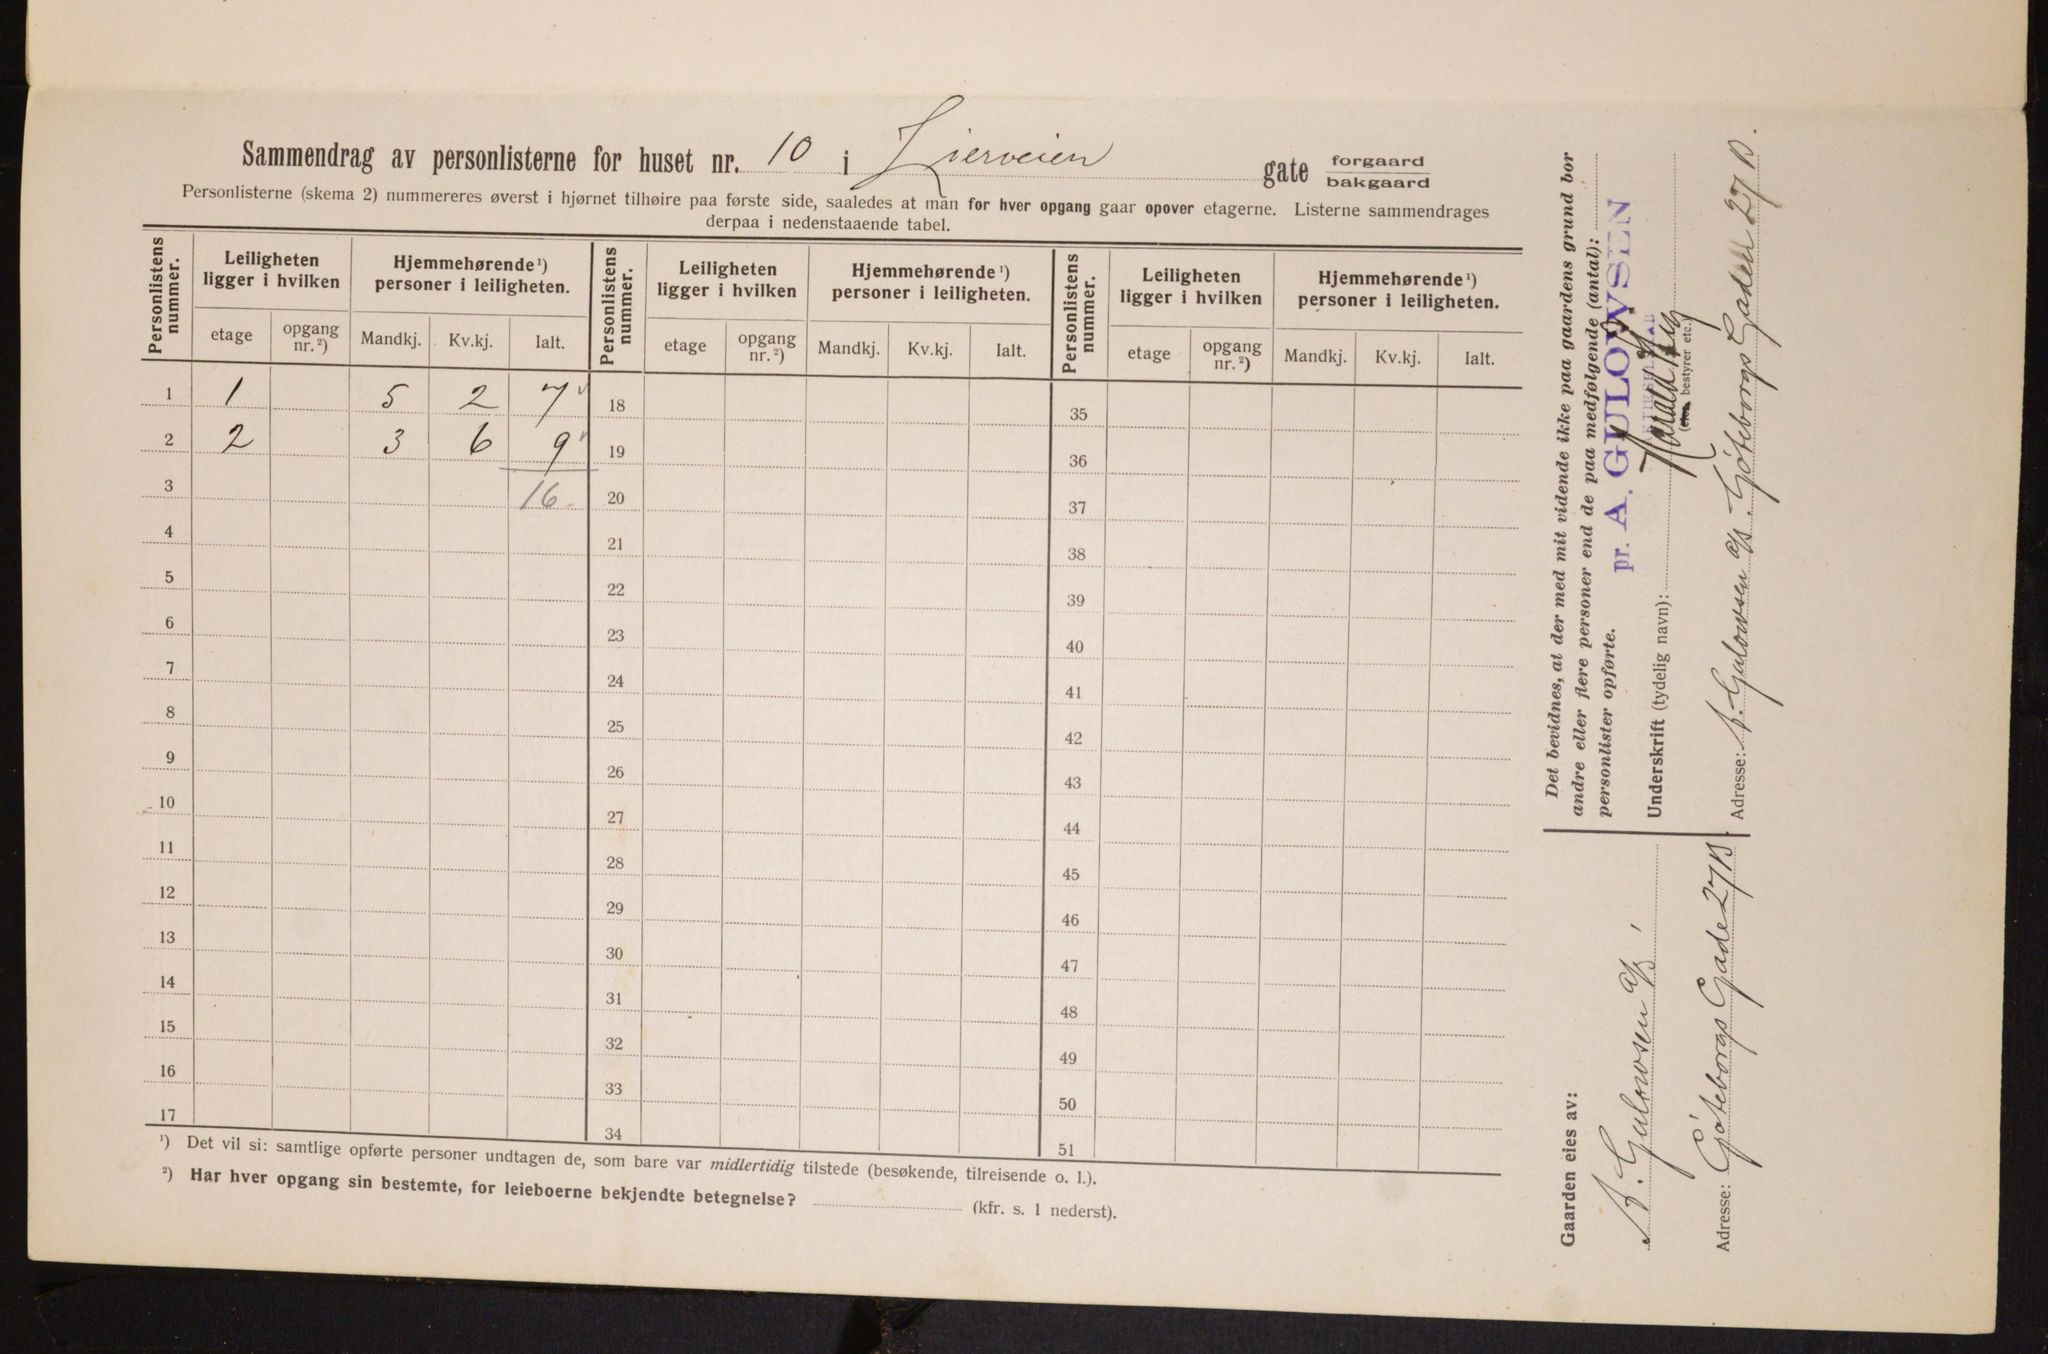 Sammendrag av personlisterne for huset nr. 10 i Lierveien gate forgaard
bakgaard
Personlisterne (skema 2) nummereres øverst i hjørnet tilhøire paa første side, saaledes at man for hver opgang gaar opover etagerne. Listerne sammendrages
derpaa i nedenstaaende tabel.
Personlistens nummer. Leiligheten ligger i hvilken Hjemmehørende ¹) personer i leiligheten. Personlistens nummer. Leiligheten ligger i hvilken Hjemmehørende ¹) personer i leiligheten. Personlistens nummer. Leiligheten ligger i hvilken Hjemmehørende ¹) personer i leiligheten.
etage opgang nr. ²) Mandkj. Kv.kj. Ialt. etage opgang nr. ²) Mandkj. Kv.kj. Ialt. etage opgang nr. ²) Mandkj. Kv.kj. Ialt.
1 1 5 2 7 18 35
2 2 3 6 9 19 36
3 16. 20 37
4 21 38
5 22 39
6 23 40
7 24 41
8 25 42
9 26 43
10 27 44
11 28 45
12 29 46
13 30 47
14 31 48
15 32 49
16 33 50
17 34 51
¹) Det vil si: samtlige opførte personer undtagen de, som bare var midlertidig tilstede (besøkende, tilreisende o. l.).
²) Har hver opgang sin bestemte, for leieboerne bekjendte betegnelse? (kfr. s. 1 nederst).
Det bevidnes, at der med mit vidende ikke paa gaardens grund bor
andre eller flere personer end de paa medfølgende (antal):
personlister opførte.
pr. A. GULOWSEN
AKTIESELSKAB
Underskrift (tydelig navn):
(eier, bestyrer etc.)
Adresse: A. Gulowsen a/s. Göteborgs Gaden 27 B.
Gaarden eies av:
A. Gulowsen a/s
Adresse: Göteborgs Gade 27 B